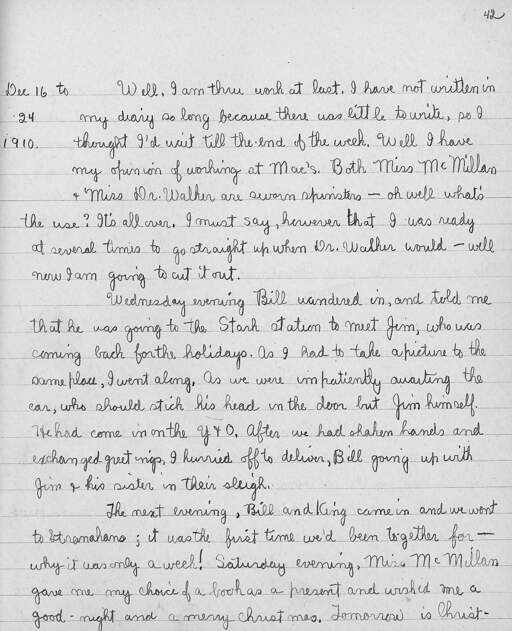 42
Dec 16 to Well, I am thru work at last. I have not written in
24 my diary so long because there was little to write, so I
1910. thought I'd wait till the end of the week. Well I have
my opinion of working at Mac's. Both Miss McMillan
+ Miss Dr. Walker are sworn spinsters — oh well what's
the use? It's all over. I must say, however that I was ready
at several times to go straight up when Dr. Walker would — well
now I am going to cut it out.
Wednesday evening Bill wandered in, and told me
that he was going to the Stark station to meet Jim, who was
coming back for the holidays. As I had to take a picture to the
same place, I went along. As we were impatiently awaiting the
car, who should stick his head in the door but Jim himself.
He had come in on the Y + O. After we had shaken hands and
exchanged greetings, I hurried off to deliver, Bill going up with
Jim & his sister in their sleigh.
The next evening, Bill and King came in and we went
to Stranahans; it was the first time we'd been together for —
why it was only a week! Saturday evening, Miss McMillan
gave me my choice of a book as a present and wished me a
good-night and a merry christmas. Tomorrow is Christ-